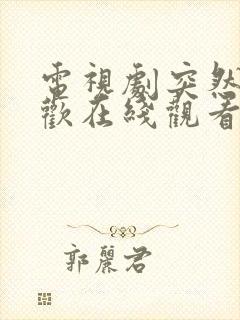 電視劇突然
歡在綫觀看
郭麗君